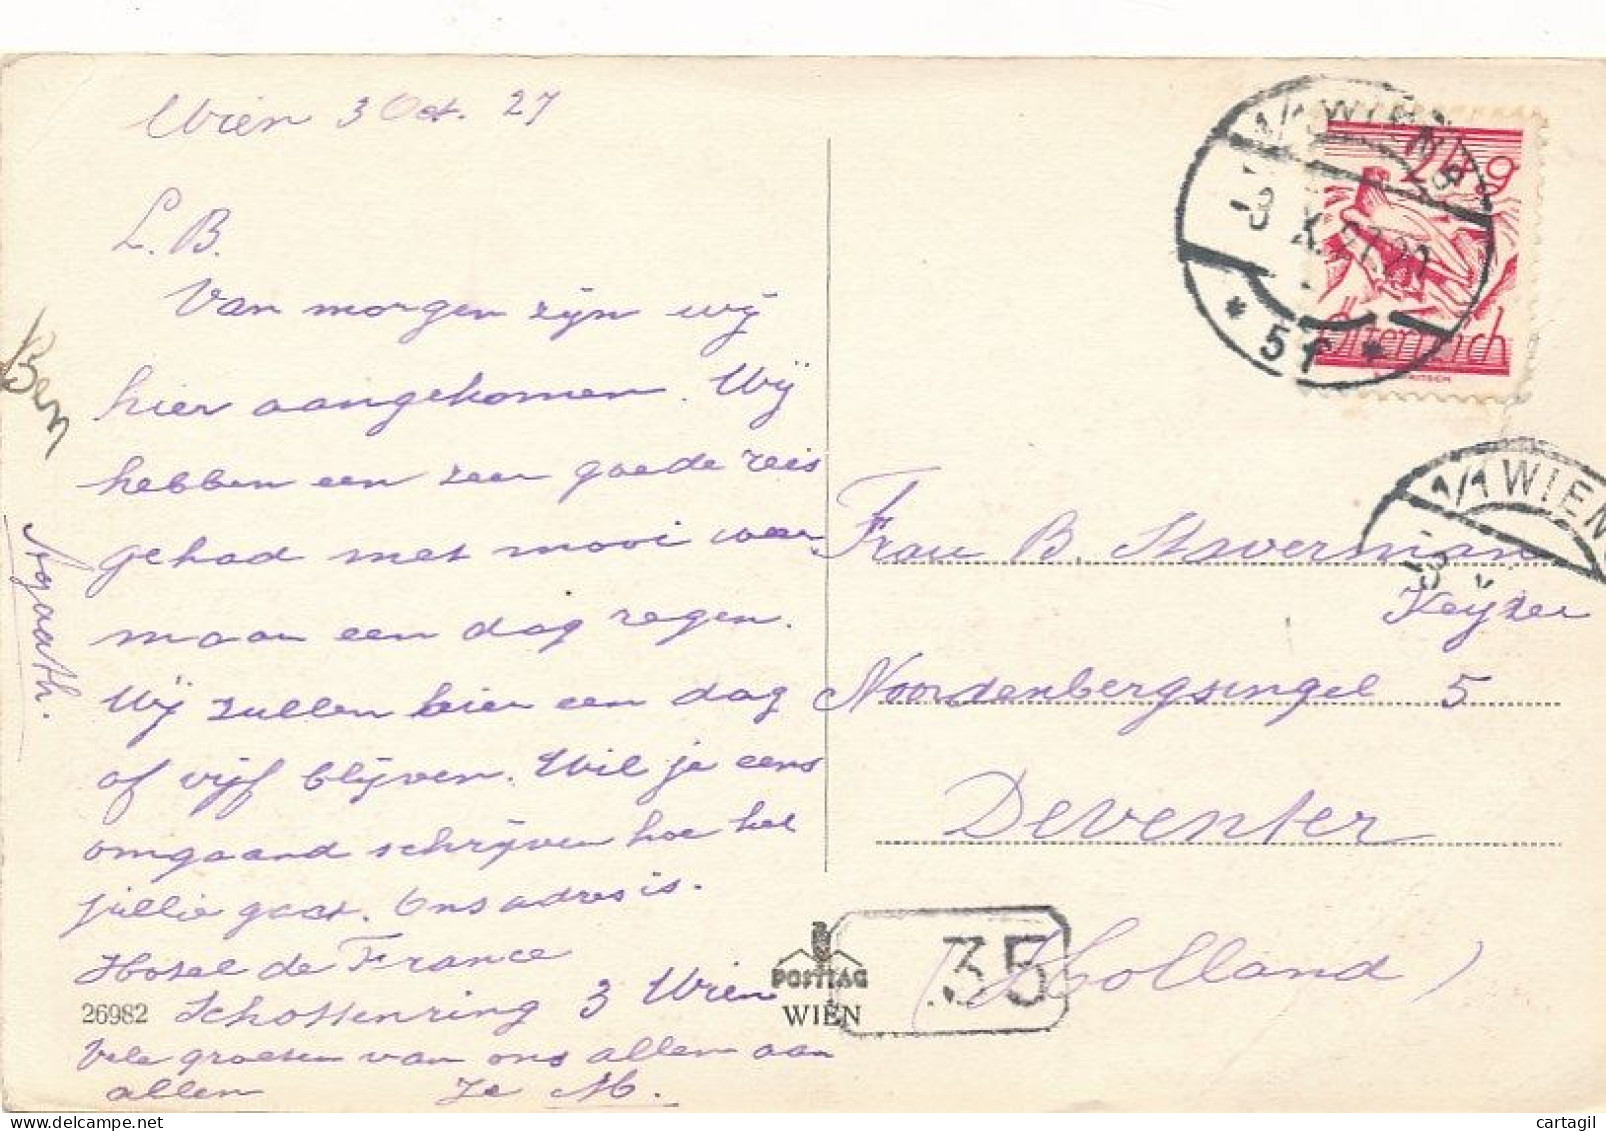 Wien 3 Oct. 27
L. B.
Van morgen zijn wij
hier aangekomen. Wij
hebben een zeer goede reis
gehad met mooi weer,
maar een dag regen.
Wij zullen hier een dag
of vijf blijven. Wil je eens
omgaand schrijven hoe het
jullie gaat. Ons adres is.
Hotel de France
Schottenring 3 Wien
Vele groeten van ons allen aan
allen Je M.
Ben
Agaath.
26982
POSTTAG
WIEN
35
24 g
Österreich
1/1 WIEN 8
-3. X. 27. 21
* 5f *
1/1 WIEN
Frau B. Staverman
Keyzer
Noordenbergsingel 5
Deventer
(Holland)
cartagil